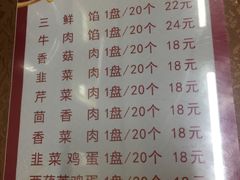 三鲜馅1盘/20个 22元
牛肉馅1盘/20个 24元
香菇肉1盘/20个 18元
韭菜肉1盘/20个 18元
芹菜肉1盘/20个 18元
茴香肉1盘/20个 18元
香菜肉1盘/20个 18元
韭菜鸡蛋1盘/20个 18元
西葫芦鸡蛋1盘/20个 18元